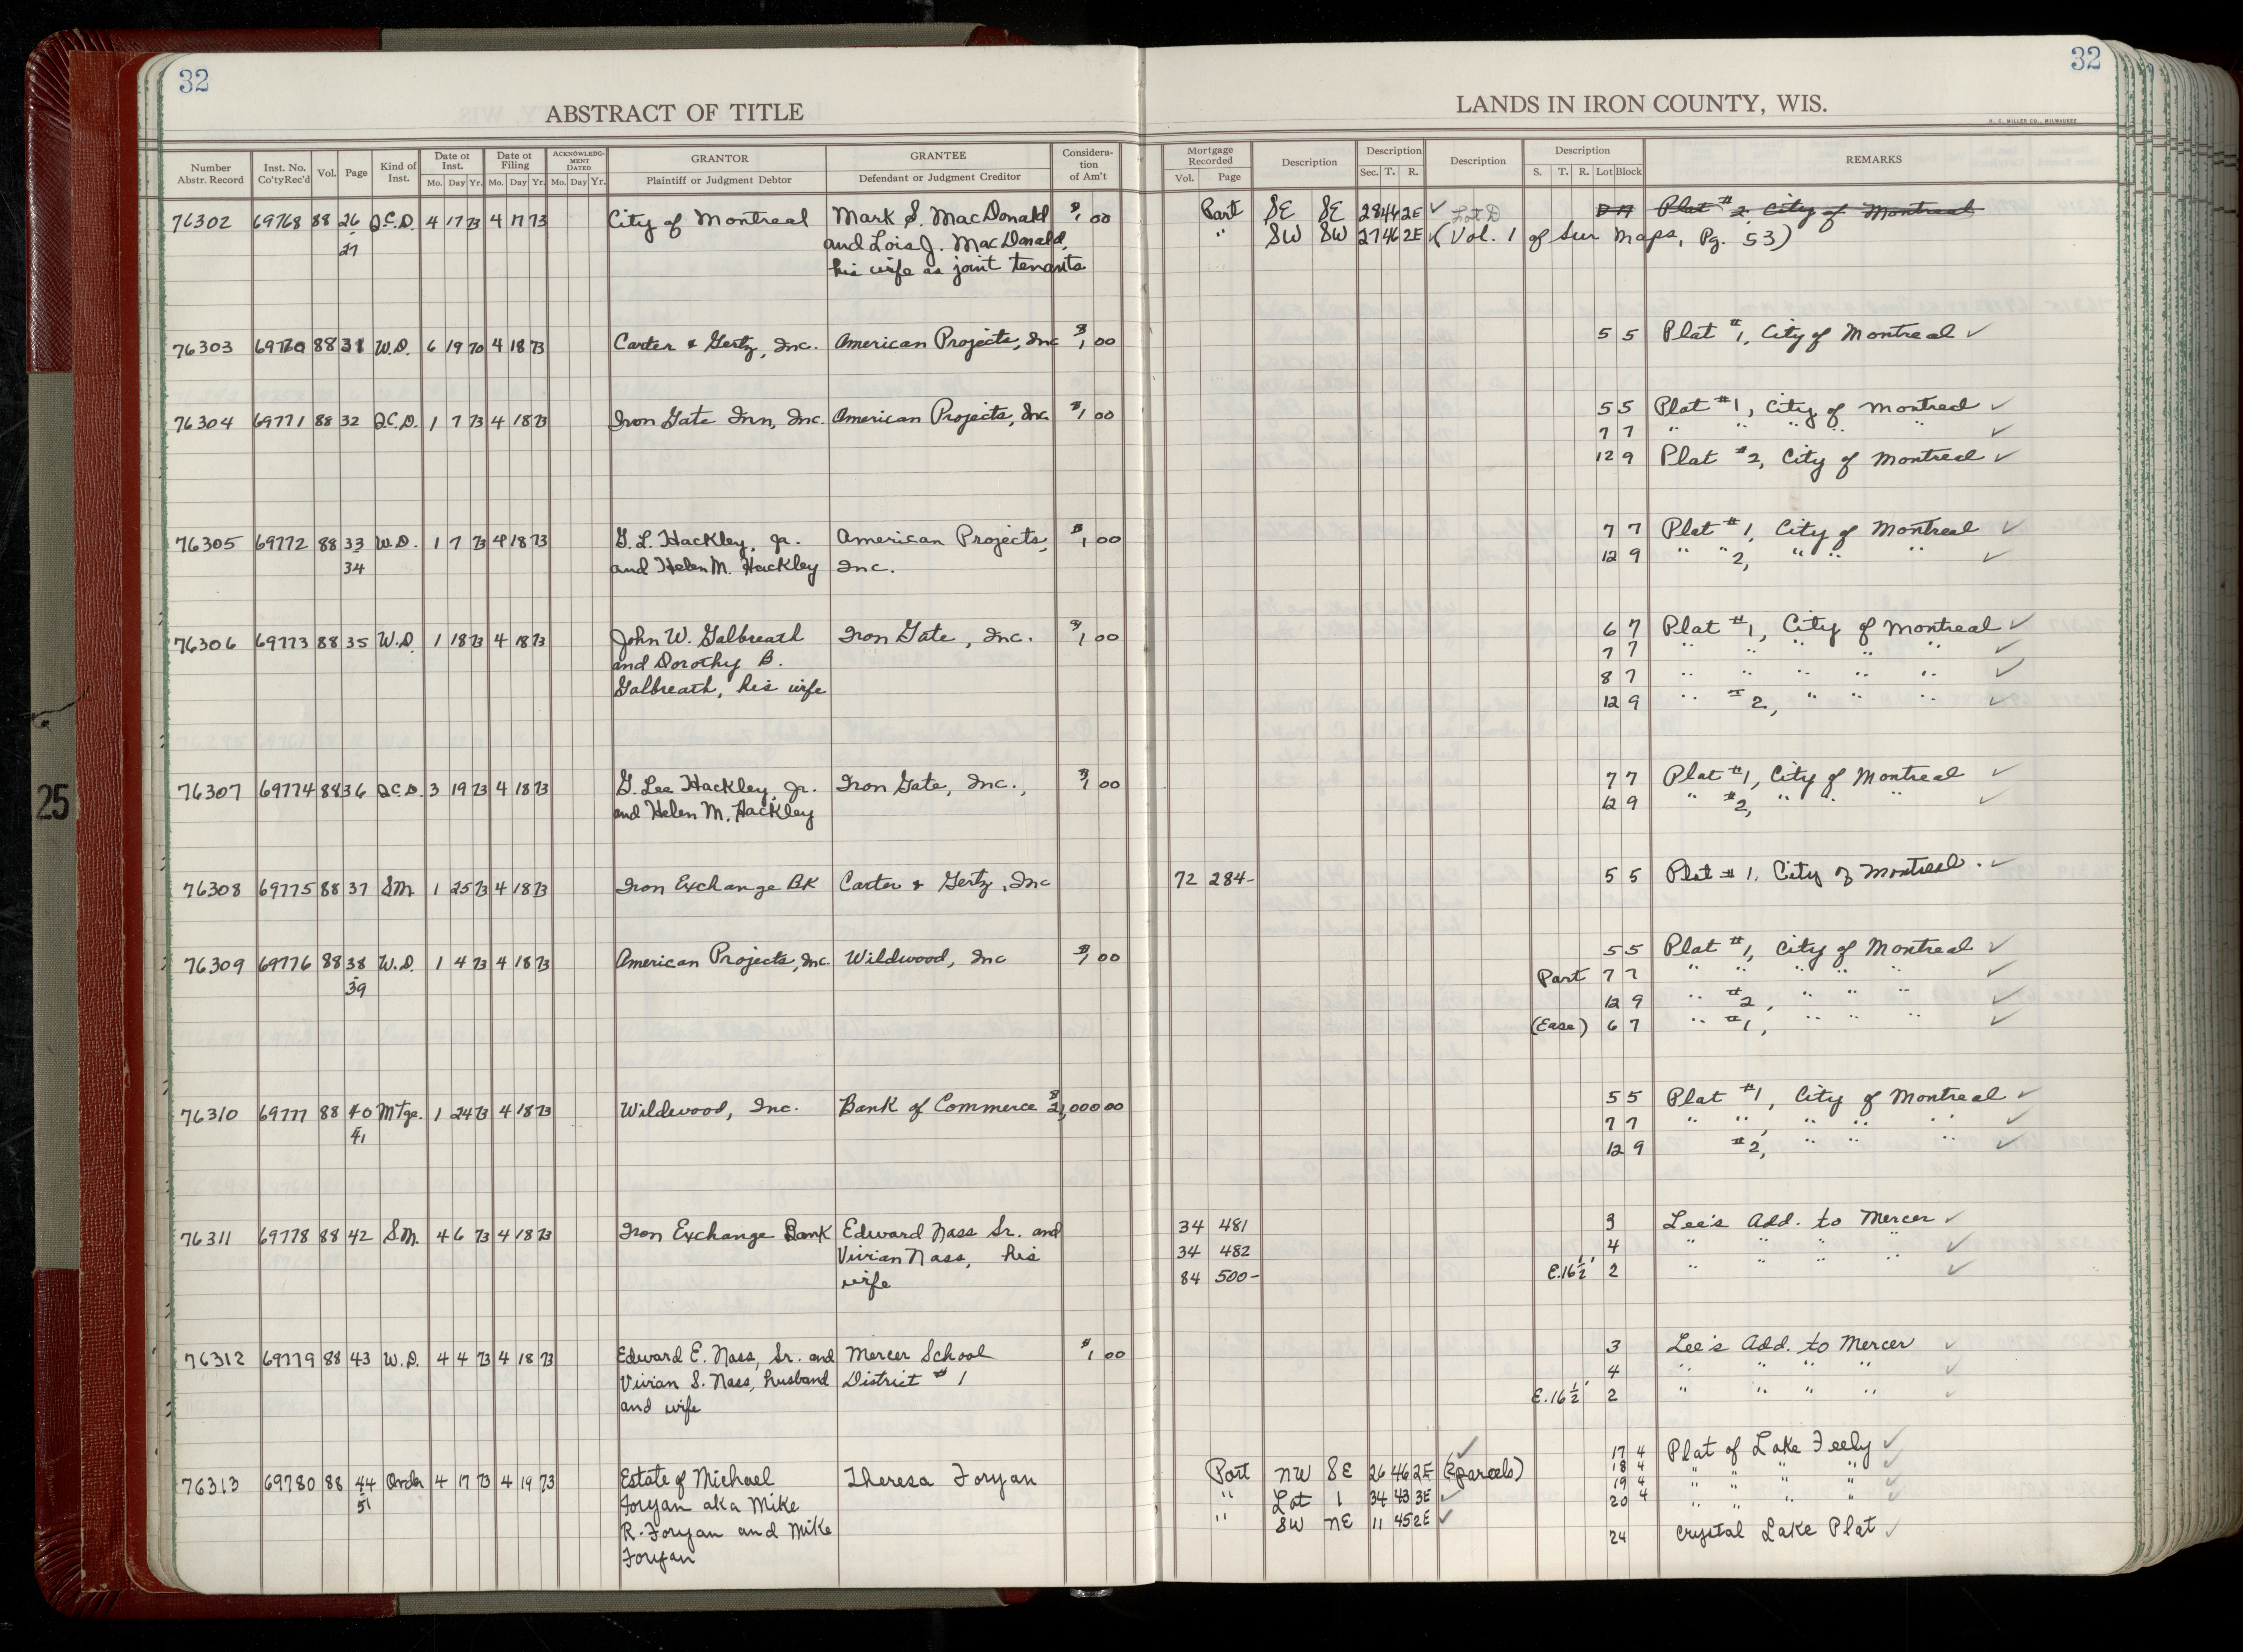 32
32
ABSTRACT OF TITLE
LANDS IN IRON COUNTY, WIS.
H. C. MILLER CO., MILWAUKEE
Number Abstr. Record Inst. No. Co'ty Rec'd Vol. Page Kind of Inst. Date of Inst. Mo. Day Yr. Date of Filing Mo. Day Yr. ACKNOWLEDGMENT DATED Mo. Day Yr. GRANTOR Plaintiff or Judgment Debtor GRANTEE Defendant or Judgment Creditor Considera-tion of Am't Mortgage Recorded Vol. Page Description Description Sec. T. R. Description Description S. T. R. Lot Block REMARKS
76302 69768 88 26 Q.C.D. 4 17 73 4 17 73 City of Montreal Mark S. MacDonald $1 00 Part SE SE 28 46 2E ✓ Lot D Plat #2, City of Montreal
27 and Lois J. MacDonald, " SW SW 27 46 2E ✓ (Vol. 1 of Sur Maps, Pg. 53)
his wife as joint tenants
76303 69770 88 31 W.D. 6 19 70 4 18 73 Carter & Gertz, Inc. American Projects, Inc $1 00 5 5 Plat #1, City of Montreal ✓
76304 69771 88 32 Q.C.D. 1 7 73 4 18 73 Iron Gate Inn, Inc. American Projects, Inc $1 00 5 5 Plat #1, City of Montreal ✓
7 7 " " " " " ✓
12 9 Plat #2, City of Montreal ✓
76305 69772 88 33 W.D. 1 7 73 4 18 73 G. L. Hackley, Jr. American Projects, $1 00 7 7 Plat #1, City of Montreal ✓
34 and Helen M. Hackley Inc. 12 9 " " 2, " " " ✓
76306 69773 88 35 W.D. 1 18 73 4 18 73 John W. Galbreath Iron Gate, Inc. $1 00 6 7 Plat #1, City of Montreal ✓
and Dorothy B. 7 7 " " " " " ✓
Galbreath, his wife 8 7 " " " " " ✓
12 9 " #2, " " " ✓
76307 69774 88 36 Q.C.D. 3 19 73 4 18 73 G. Lee Hackley, Jr. Iron Gate, Inc., $1 00 7 7 Plat #1, City of Montreal ✓
and Helen M. Hackley 12 9 " #2, " " " ✓
76308 69775 88 37 SM 1 25 73 4 18 73 Iron Exchange BK Carter & Gertz, Inc 72 284- 5 5 Plat #1, City of Montreal. ✓
76309 69776 88 38 W.D. 1 4 73 4 18 73 American Projects, Inc. Wildwood, Inc $1 00 5 5 Plat #1, City of Montreal ✓
39 Part 7 7 " " " " " ✓
12 9 " #2, " " " ✓
(Ease) 6 7 " #1, " " " ✓
76310 69777 88 40 Mtge. 1 24 73 4 18 73 Wildwood, Inc. Bank of Commerce 00 5 5 Plat #1, City of Montreal ✓
41 7 7 " " , " " " ✓
12 9 #2, " " " ✓
76311 69778 88 42 S.M. 4 6 73 4 18 73 Iron Exchange Bank Edward Nass Sr. and 34 481 3 Lee's Add. to Mercer ✓
Vivian Nass, his 34 482 4 " " " " ✓
wife 84 500- E.16½' 2 " " " " ✓
76312 69779 88 43 W.D. 4 4 73 4 18 73 Edward E. Nass, Sr. and Mercer School $1 00 3 Lee's Add. to Mercer ✓
Vivian S. Nass, husband District #1 4 " " " " ✓
and wife E.16½' 2 " " " " ✓
76313 69780 88 44 Order 4 17 73 4 19 73 Estate of Michael Theresa Foryan Part NW SE 26 46 2E (2 parcels) ✓ 17 4 Plat of Lake Feely ✓
51 Foryan aka Mike " Lot 1 34 43 3E ✓ 18 4 " " " " ✓
R. Foryan and Mike " SW NE 11 45 2E ✓ 19 4 " " " " ✓
Foryan 20 4 " " " " ✓
24 Crystal Lake Plat ✓
25